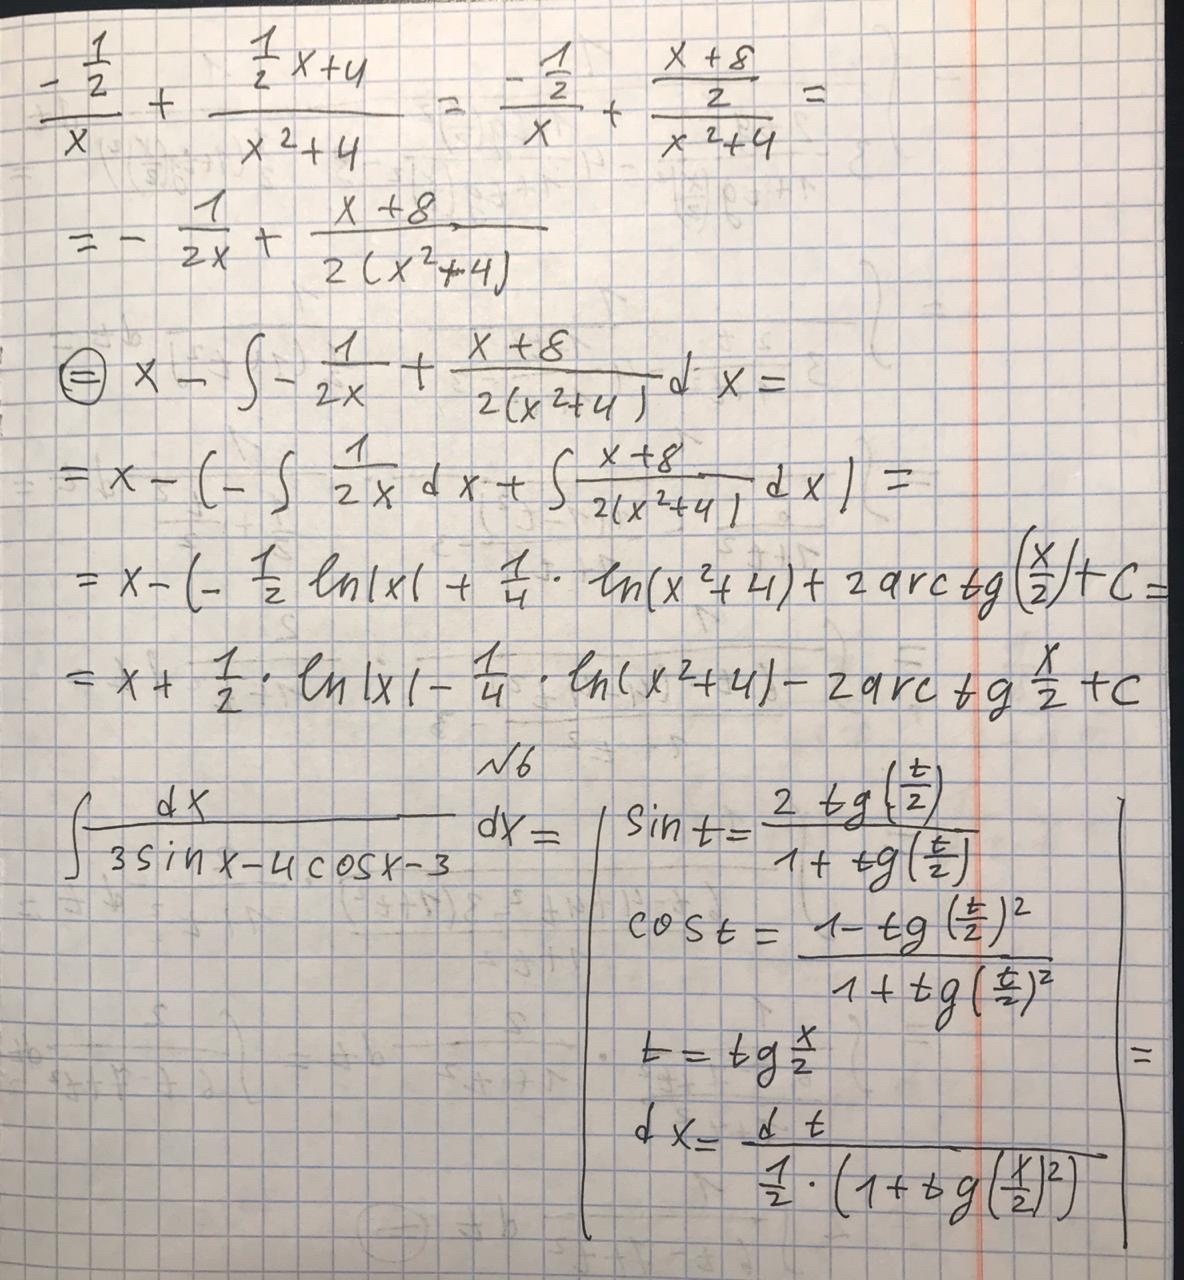 -1/2 / x + (1/2 x+4)/(x²+4) = -1/2 / x + ((x+8)/2)/(x²+4) =
= - 1/2x + (x+8)/(2(x²+4))
⊜ x - ∫ - 1/2x + (x+8)/(2(x²+4)) d x =
= x - (- ∫ 1/2x dx + ∫ (x+8)/(2(x²+4)) dx) =
= x - (- 1/2 ln|x| + 1/4 · ln(x²+4) + 2 arc tg (x/2) + C =
= x + 1/2 · ln|x| - 1/4 · ln(x²+4) - 2 arc tg x/2 + C
√6
∫ dx/(3 sin x - 4 cos x - 3) dx = | sin t = (2 tg (t/2))/(1 + tg (t/2))
cos t = (1 - tg (t/2)²)/(1 + tg (t/2)²)
t = tg x/2 | =
dx = d t/(1/2 · (1 + tg (x/2)²))